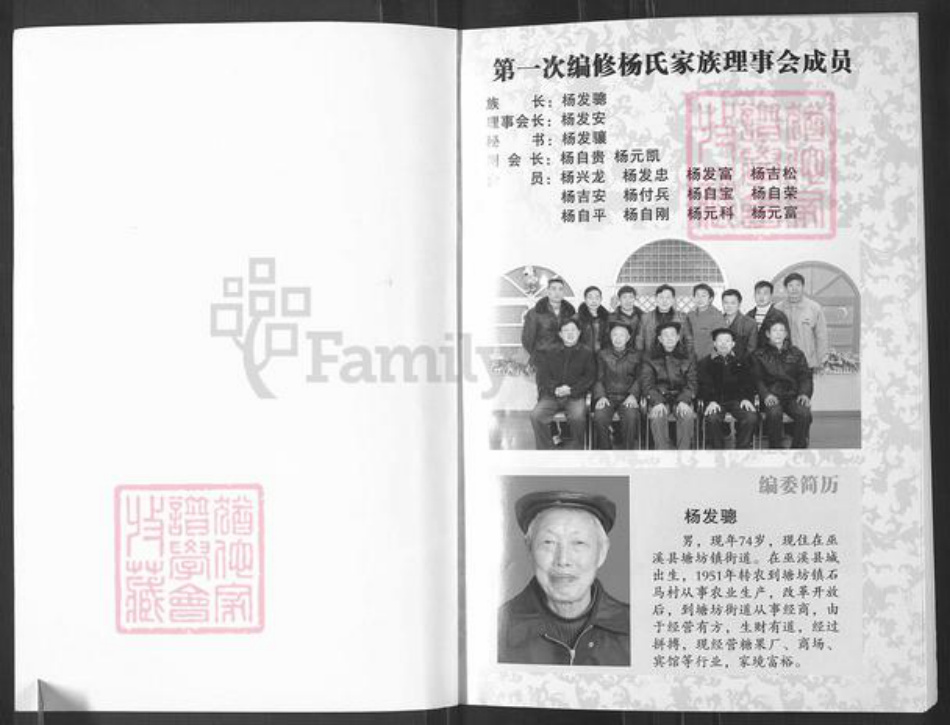 第一次编修杨氏家族理事会成员
族 长：杨发骢
理事会长：杨发安
秘 书：杨发骧
副 会 长：杨自贵 杨元凯
员：杨兴龙 杨发忠 杨发富 杨吉松
杨吉安 杨付兵 杨自宝 杨自荣
杨自平 杨自刚 杨元科 杨元富
Family
编委简历
杨发骢
男，现年74岁，现住在巫
溪县塘坊镇街道。在巫溪县城
出生，1951年转农到塘坊镇石
马村从事农业生产，改革开放
后，到塘坊街道从事经商，由
于经营有方，生财有道，经过
拼搏，现经营糖果厂、商场、
宾馆等行业，家境富裕。
猶他家
譜學會
收藏